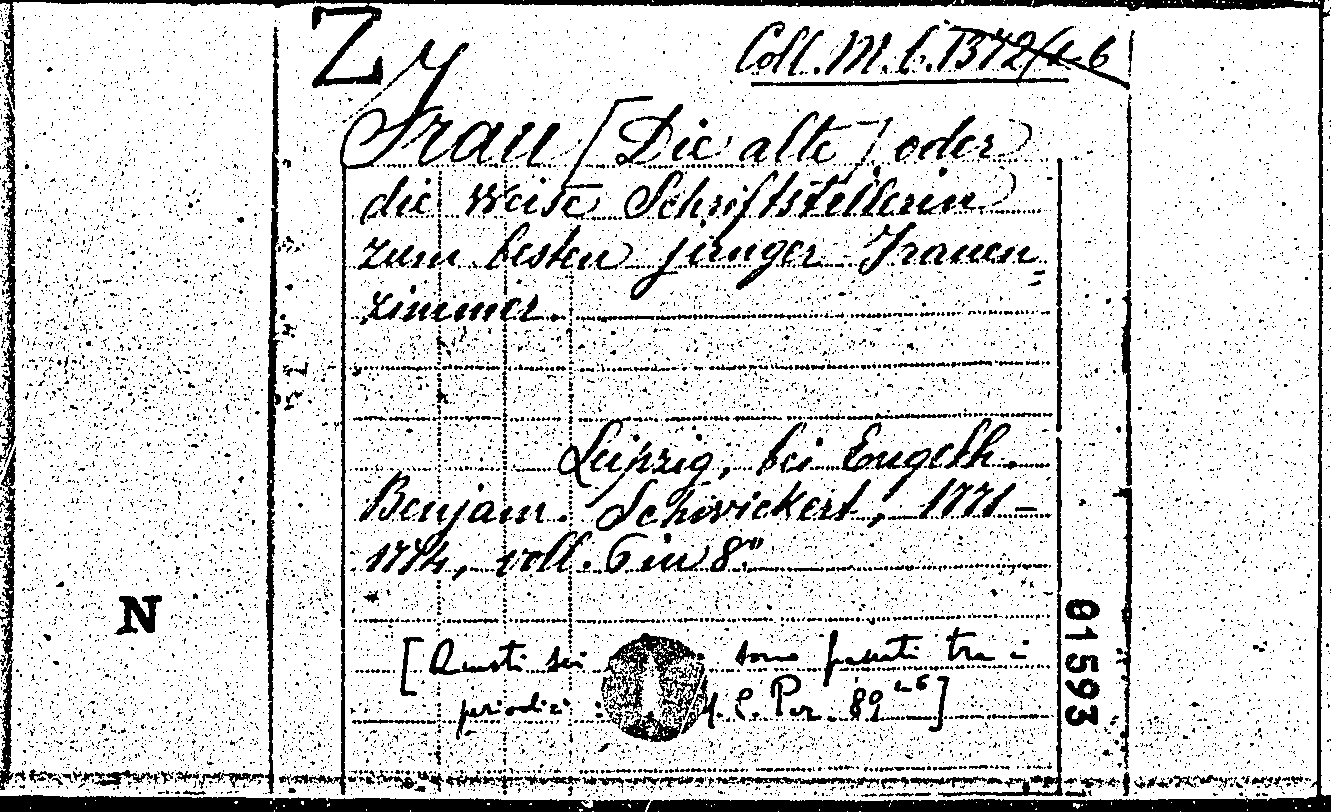 Zy
Coll. M. C. 1372/1-6
Frau [Die alte] oder
die weise Schriftstellerin
zum besten junger Frauen-
zimmer.
Leipzig, bei Engelh.
Benjam. Schwickert, 1771-
1774, voll. 6 in 8°
[Questi sei sono passati tra i
periodici: C. Per. 89 1-6]
N
01593